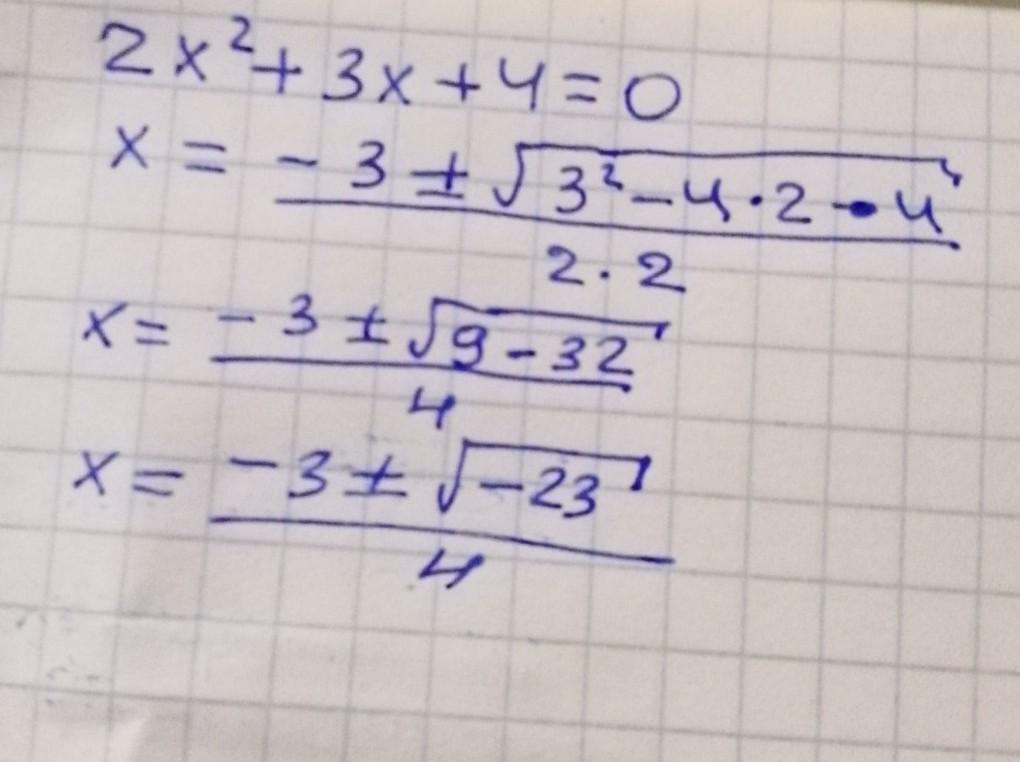 2x² + 3x + 4 = 0
x = -3 ± √(3² - 4 · 2 · 4) / 2 · 2
x = -3 ± √(9 - 32) / 4
x = -3 ± √(-23) / 4